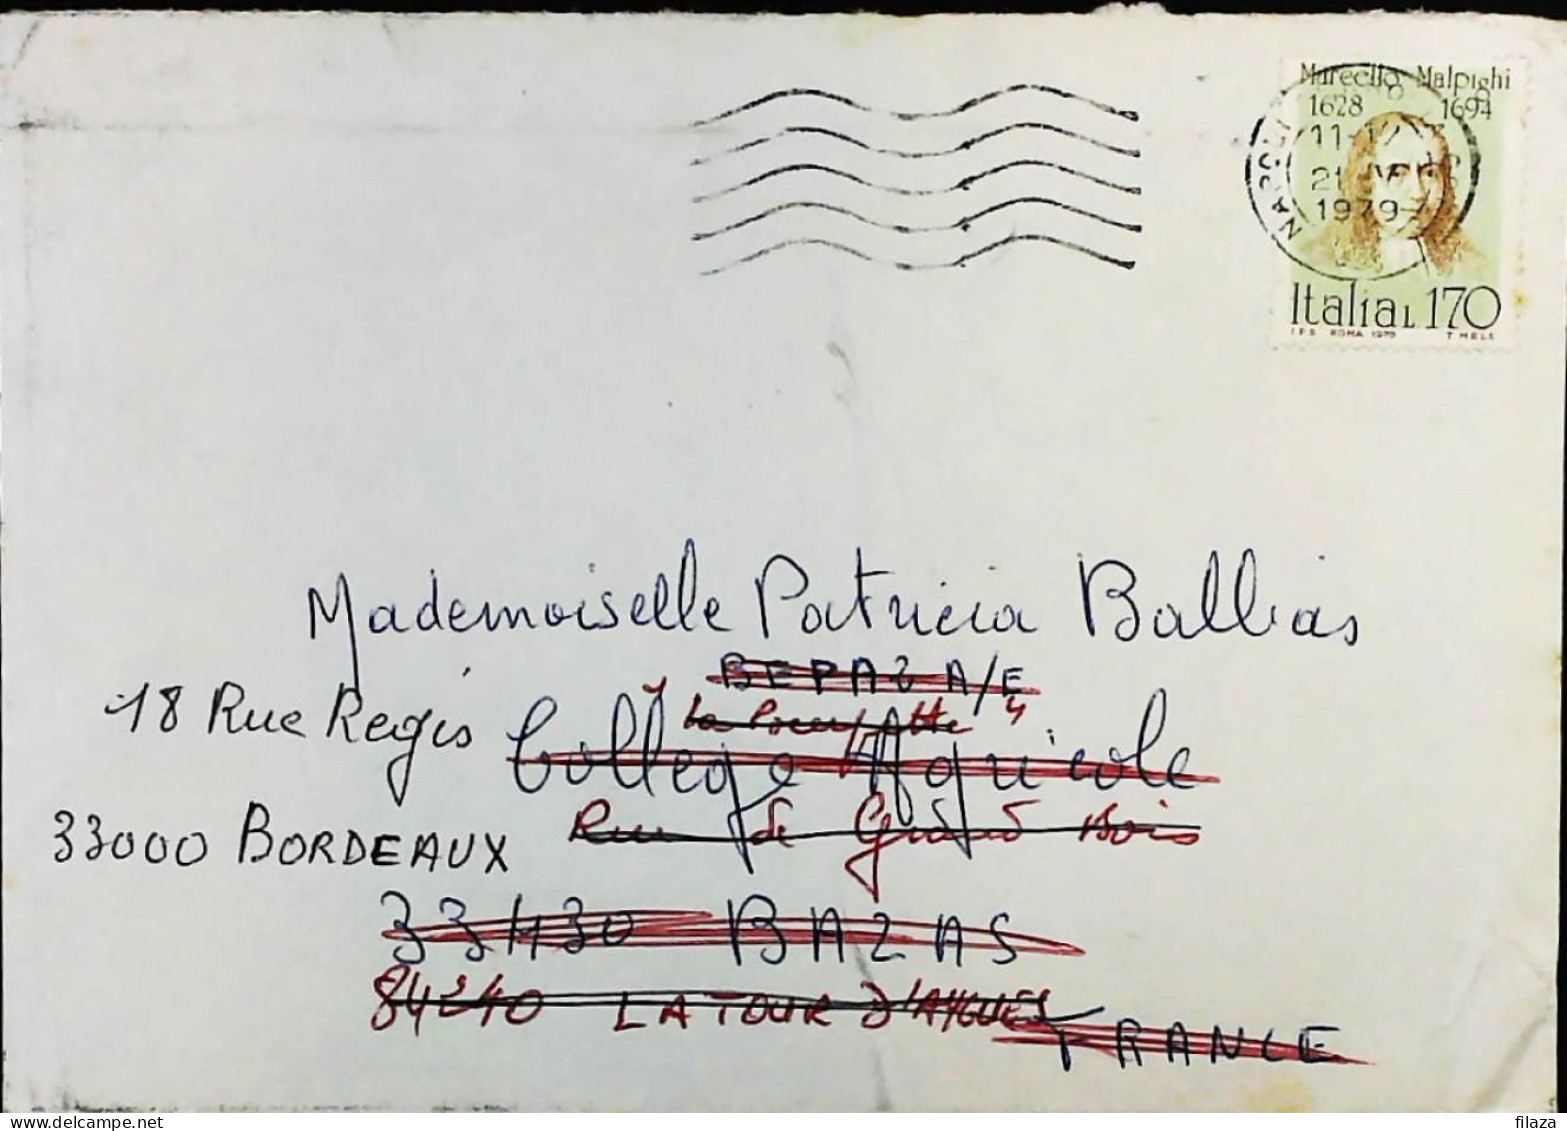 Marcello Malpighi
1628 1694
NAPOLI
11-12
21
1979
Italia L170
I.P.S. ROMA 1979 T. MELE
Mademoiselle Patricia Balbas
BEPA2 A/E
18 Rue Regis
La
College Agricole
33000 BORDEAUX
Rue de Grand Bois
33430 BAZAS
84240 LA TOUR D'AYGUES
FRANCE
filaza